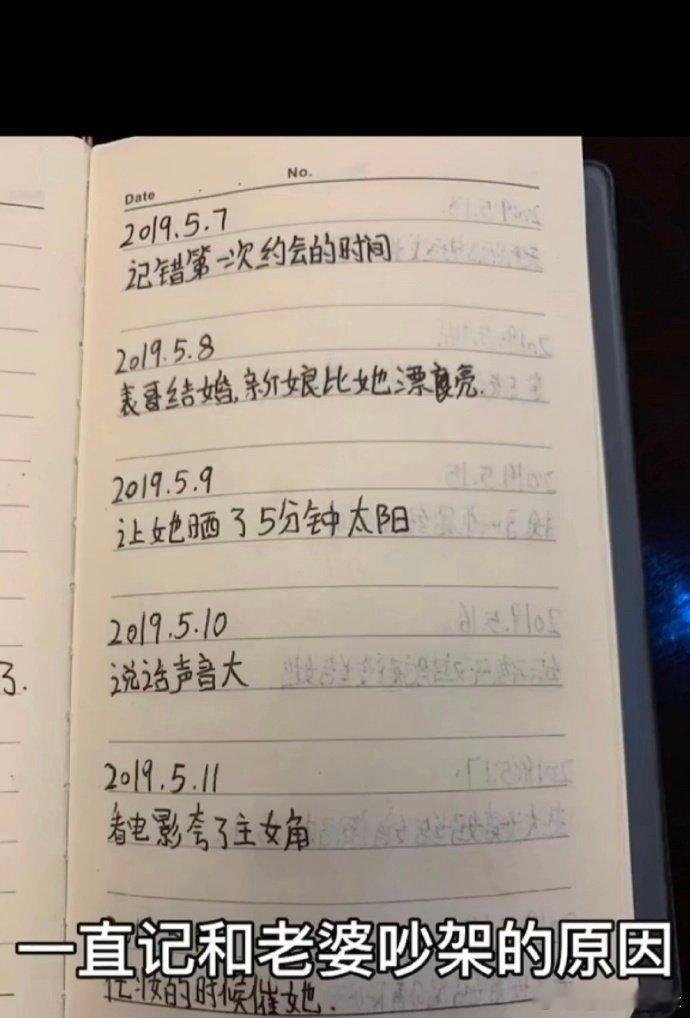 Date . . No.
2019.5.7
记错第一次约会的时间
2019.5.8
表哥结婚,新娘比她漂亮.
2019.5.9
让她晒了5分钟太阳
2019.5.10
说话声音大
了.
2019.5.11
看电影夸了主女角
一直记和老婆吵架的原因
化妆的时候催她.